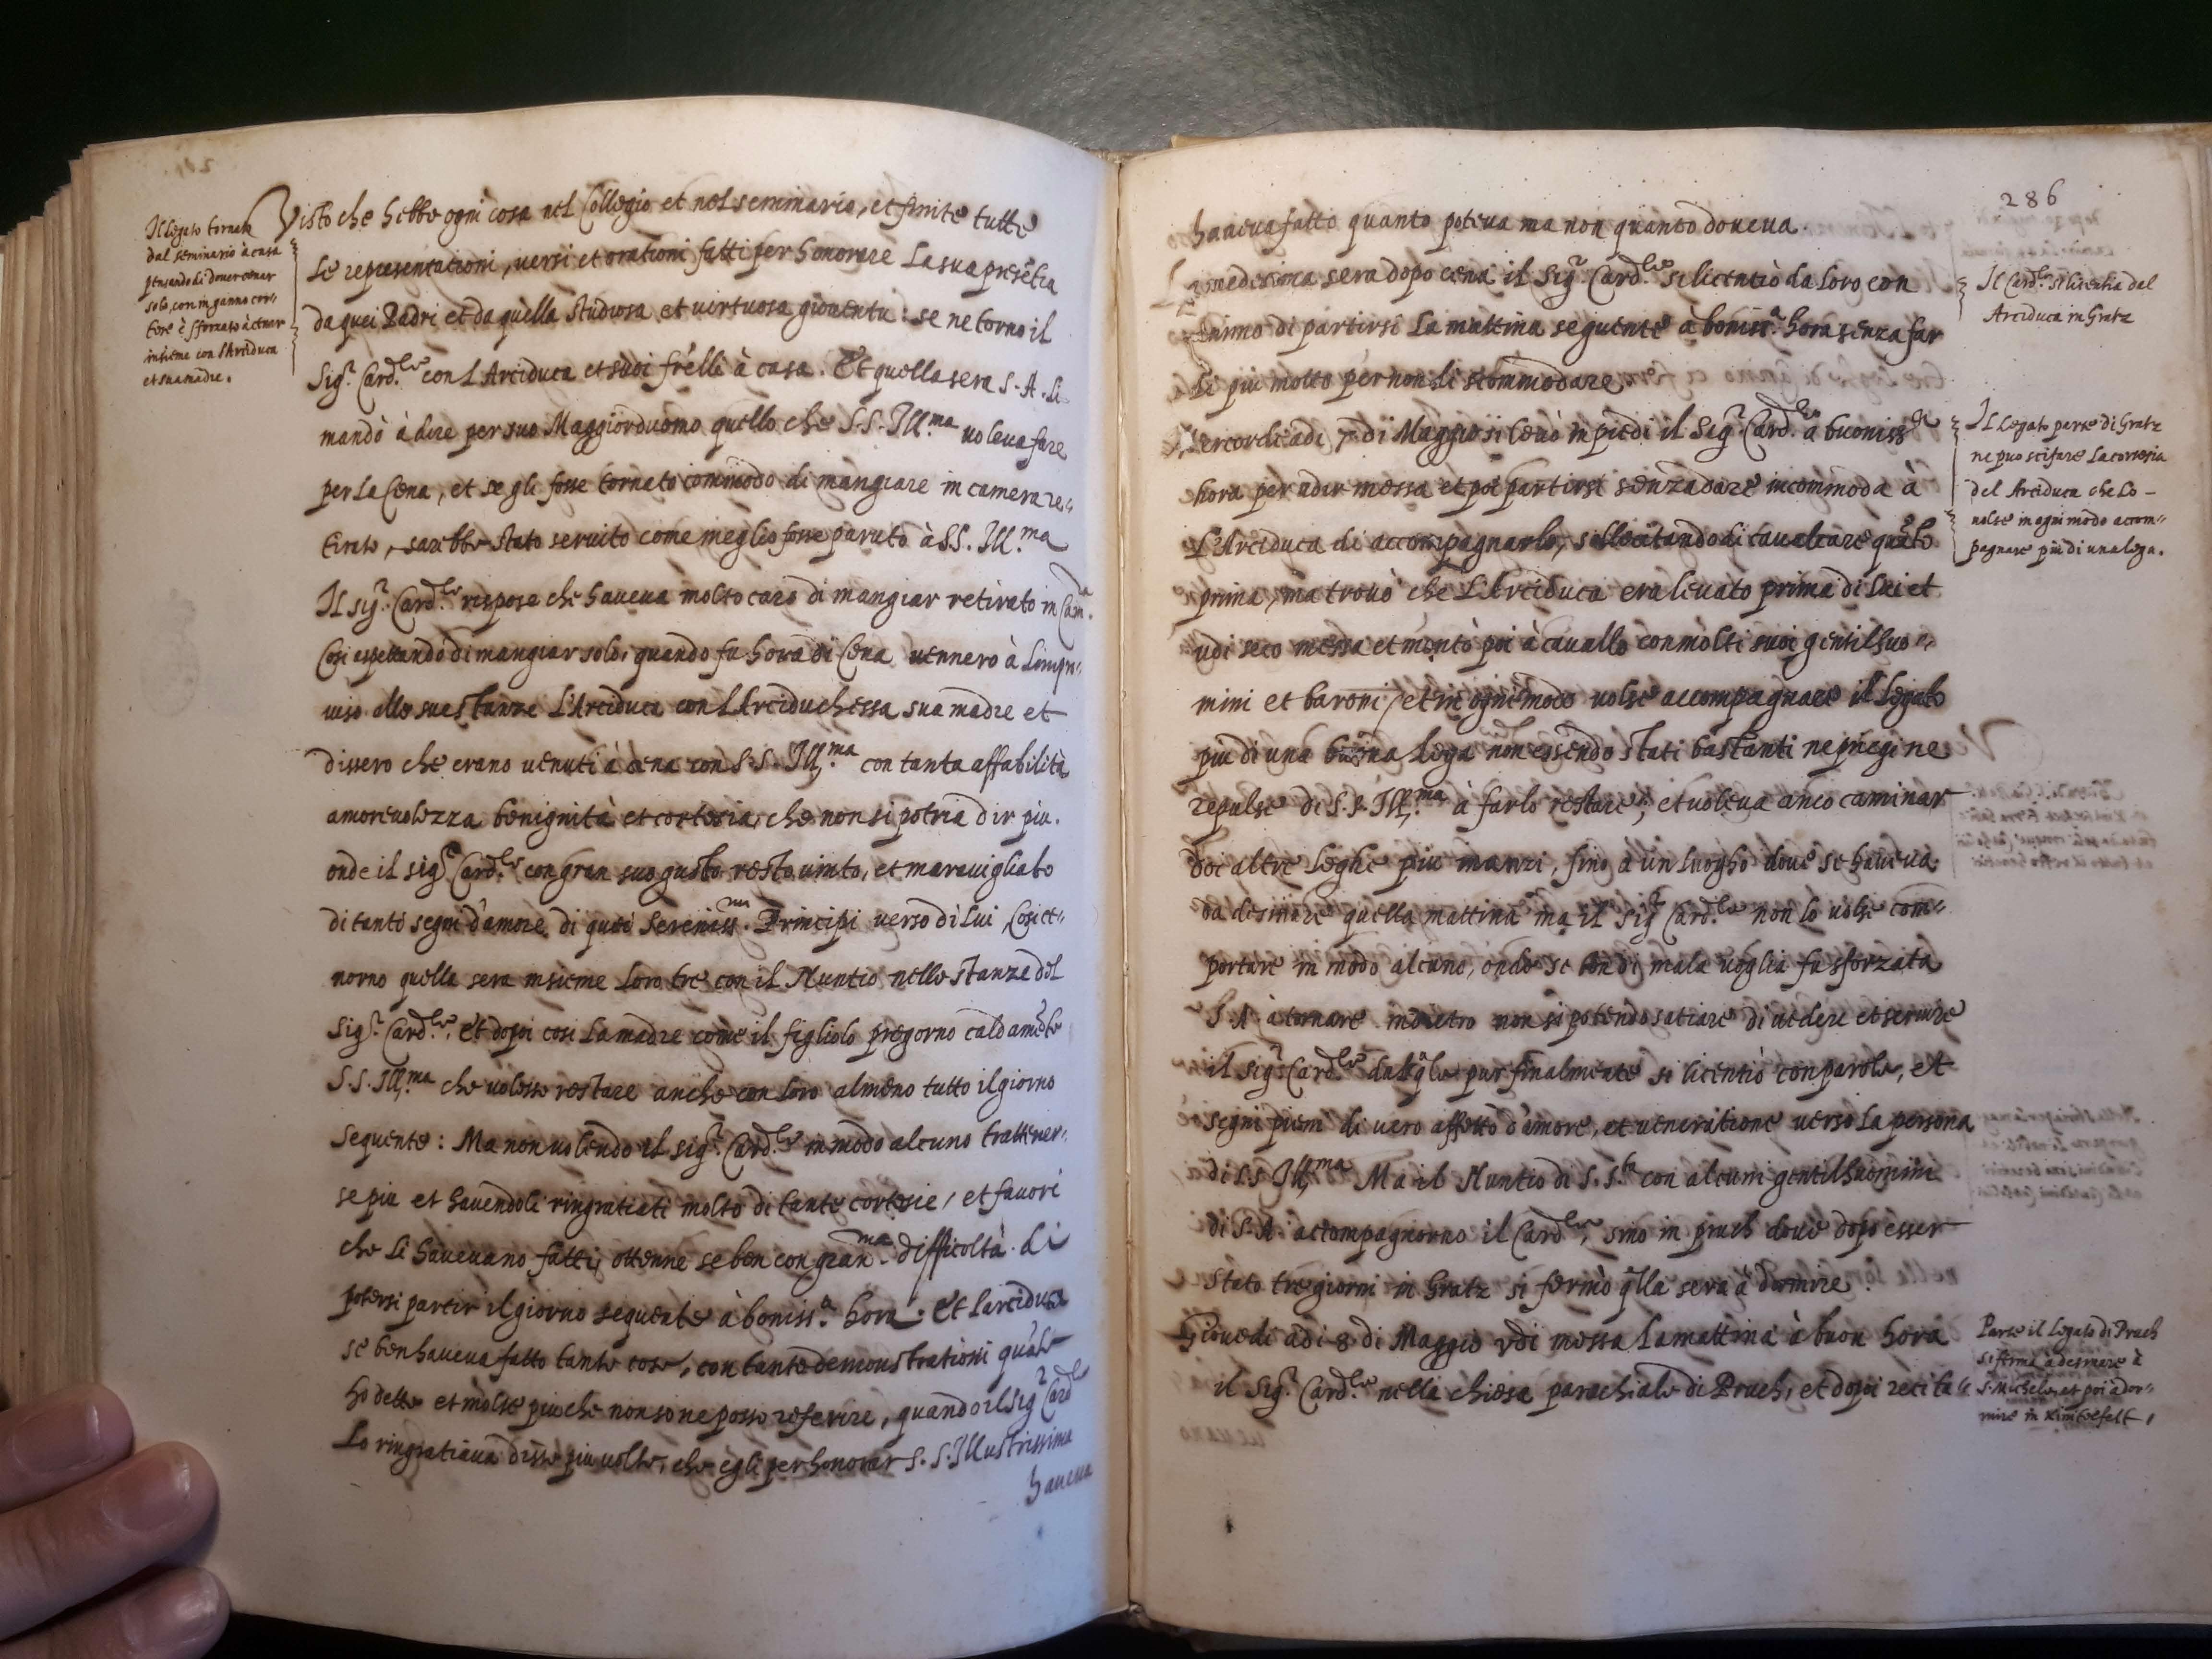 Il Legato tornato
dal seminario à casa
pensando di dover cenar
solo, con inganno cor-
tese è sforzato à cenar
insieme con l'Arciduca
et sua madre.
Visto che hebbe ogni cosa nel Collegio et nel seminario, et finite tutte
le representationi, versi et orationi fatti per honorare la sua presẽtia
da quei Padri et da quella studiosa et virtuosa gioventu: se ne torno il
Sig.r Card.le con l'Arciduca et suoi frẽlli à casa. Et quella sera S. A. li
mandò à dire per suo Maggiorduomo quello che S.S. Ill.ma voleva fare
per la Cena, et se gli fosse tornato commodo di mangiare in camera re-
tirato, sarebbe stato servito come meglio fosse paruto à S.S. Ill.ma
Il sig.r Card.le rispose che haveva molto caro di mangiar retirato in Cam.a
Cosi aspettando di mangiar solo, quando fu hora di Cena vennero à l'impro-
viso alle sue stanze l'Arciduca con l'Arciduchessa sua madre et
dissero che erano venuti à cena con S.S. Ill.ma con tanta affabilità
amorevolezza benignità et cortesia, che non si potria dir piu.
onde il sig.r Card.le con gran suo gusto resto vinto, et maravigliato
di tanti segni d'amore di quei Sereniss.mi Principi verso di lui Cosi ce-
norno quella sera insieme loro tre con il Nuntio nelle stanze del
Sig.r Card.le, et dopoi cosi la madre come il figliolo pregorno caldamẽte
S.S. Ill.ma che volesse restare anche con loro almeno tutto il giorno
sequente: Ma non volendo il sig.r Card.le in modo alcuno trattener-
se piu et havendoli ringratiati molto di tante cortesie, et favori
che li havevano fatti, ottenne se ben con gran.ma difficoltà di
potersi partir il giorno sequente à boniss.a hora. Et l'arciduca
se ben haveva fatto tante cose, con tante demonstrationi quãte
ho dette et molte piu che non so ne posso referire, quando il sig.r Card.le
lo ringratiava disse piu volte, che egli per honorar S. S. Illustrissima
haveva
286
haveva fatto quanto poteva ma non quanto doveva.
La medesima sera dopo cena il sig.r Card.le si licentiò da loro con
animo di partirsi la mattina sequente à boniss.a hora senza far
li piu motto per non li scommodare
Il Card.le si licentia dal
Arciduca in Gratz
Mercordi adi 7 di Maggio si levò in piedi il Sig.r Card.le à buoniss.a
hora per udir messa et poi partirsi senza dare incommodo à
l'Arciduca di accompagnarlo, sollecitando di cavalcare quãto
prima, ma trovò che l'Arciduca era levato prima di lui et
udi seco messa et montò poi à cavallo con molti suoi gentilhuo-
mini et baroni, et in ogni modo volse accompagnare il legato
piu di una buona lega non essendo stati bastanti ne priegi ne
repulse di S.S. Ill.ma à farlo restare, et voleva anco caminar
doi altre leghe piu inanzi, fino à un luogho dove se haveva
da desinare quella mattina ma il sig.r Card.le non lo volse com-
portare in modo alcuno, onde se ben di mala voglia fu sforzata
S. A. à tornare indietro non si potendo satiare di vedere et servire
il sig.r Card.le dal q̃le pur finalmente si licentiò con parole, et
segni pieni di vero affetto d'amore, et veneratione verso la persona
di S.S. Ill.ma Ma il Nuntio di S. S.tà con alcuni gentilhuomini
di S. A. accompagnorno il Card.le sino in pruch dove dopo esser
stato tre giorni in Gratz si fermò q̃lla sera à dormire.
Il Legato parte di Gratz
ne puo scifare la cortesia
del Arciduca che lo
volse in ogni modo accom-
pagnare piu di una lega.
Giovedi adi 8 di Maggio udi messa la mattina à buon hora
il sig.r Card.le nella chiesa parochiale di Pruch, et dopoi recita-
Parte il Legato di Pruch
si ferma à desinare à
S. Michele, et poi à dor-
mire in Knitelfelt.